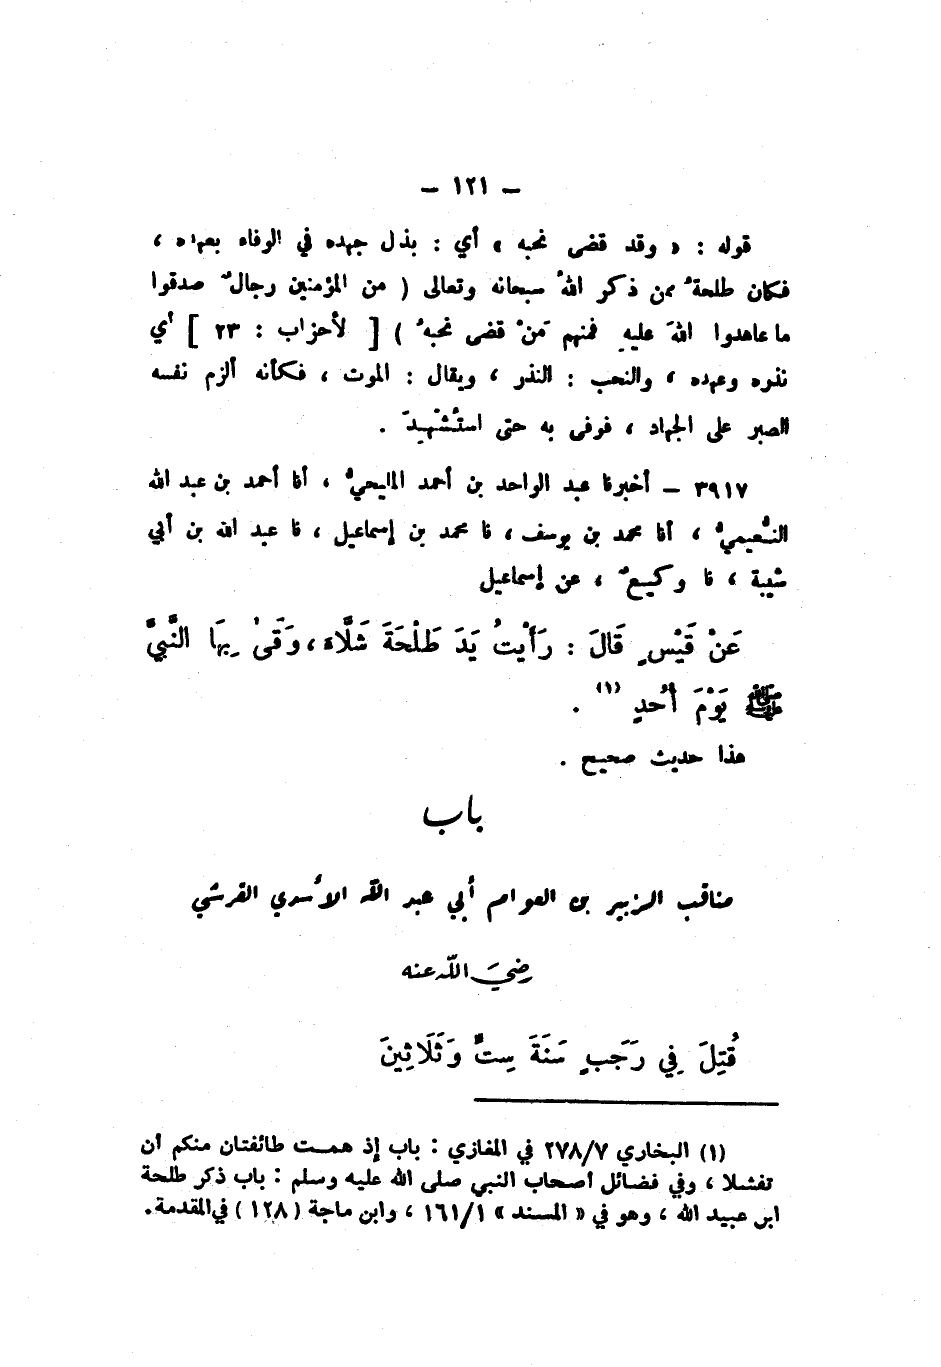 – ١٢١ –
قوله : « وقد قضى نحبه » أي : بذل جهده في الوفاء بعهده ،
فكان طلحةُ ممن ذكر اللهُ سبحانه وتعالى ( من المؤمنين رجالٌ صدقوا
ما عاهدوا اللهَ عليهِ فمنهم مَنْ قضى نحبهُ ) [ لأحزاب : ٢٣ ] أي
نذره وعهده ، والنحب : النذر ، ويقال : الموت ، فكأنه ألزم نفسه
الصبر على الجهاد ، فوفى به حتى استُشْهِدَ .
٣٩١٧ – أخبرنا عبد الواحد بن أحمد المليحيُّ ، أنا أحمد بن عبد الله
النُّعيميُّ ، أنا محمد بن يوسف ، نا محمد بن إسماعيل ، نا عبد الله بن أبي
شيبة ، نا وكيعٌ ، عن إسماعيل
عَنْ قَيْسٍ قَالَ : رَأَيْتُ يَدَ طَلْحَةَ شَلَّاءَ ، وَقَىٰ بِهَا النَّبِيَّ
ﷺ يَوْمَ أُحُدٍ (١) .
هذا حديث صحيح .
باب
مناقب الزبير بن العوام أبي عبد الله الأسدي القرشي
رضيَ الله عنه
قُتِلَ فِي رَجَبٍ سَنَةَ سِتٍّ وَثَلَاثِينَ
(١) البخاري ٢٧٨/٧ في المغازي : باب إذ همت طائفتان منكم أن
تفشلا ، وفي فضائل أصحاب النبي صلى الله عليه وسلم : باب ذكر طلحة
ابن عبيد الله ، وهو في « المسند » ١٦١/١ ، وابن ماجة ( ١٢٨ ) في المقدمة .